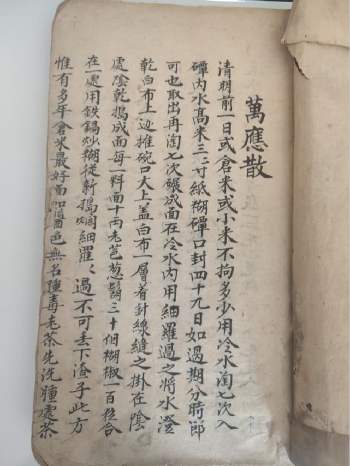 萬應散
清明前一日或倉米或小米不拘多少用冷水淘七次入
磾内水高米三二寸紙糊磾口封四十九日如過期分時即
可也取出再淘七次碾成面在冷水内用細羅過之將水澄
乾白布上边推碗口大上盖白布一層著針線縫之掛在陰
處陰乾搗成面每一料面十両老芭葱鬍三十個糊椒一百粒合
在一處用鉄鍋炒糊從新搗爛細羅羅過不可丢下渣子此方
惟有多年倉米最好面如醬色無名腫毒老茶先洗腫處茶